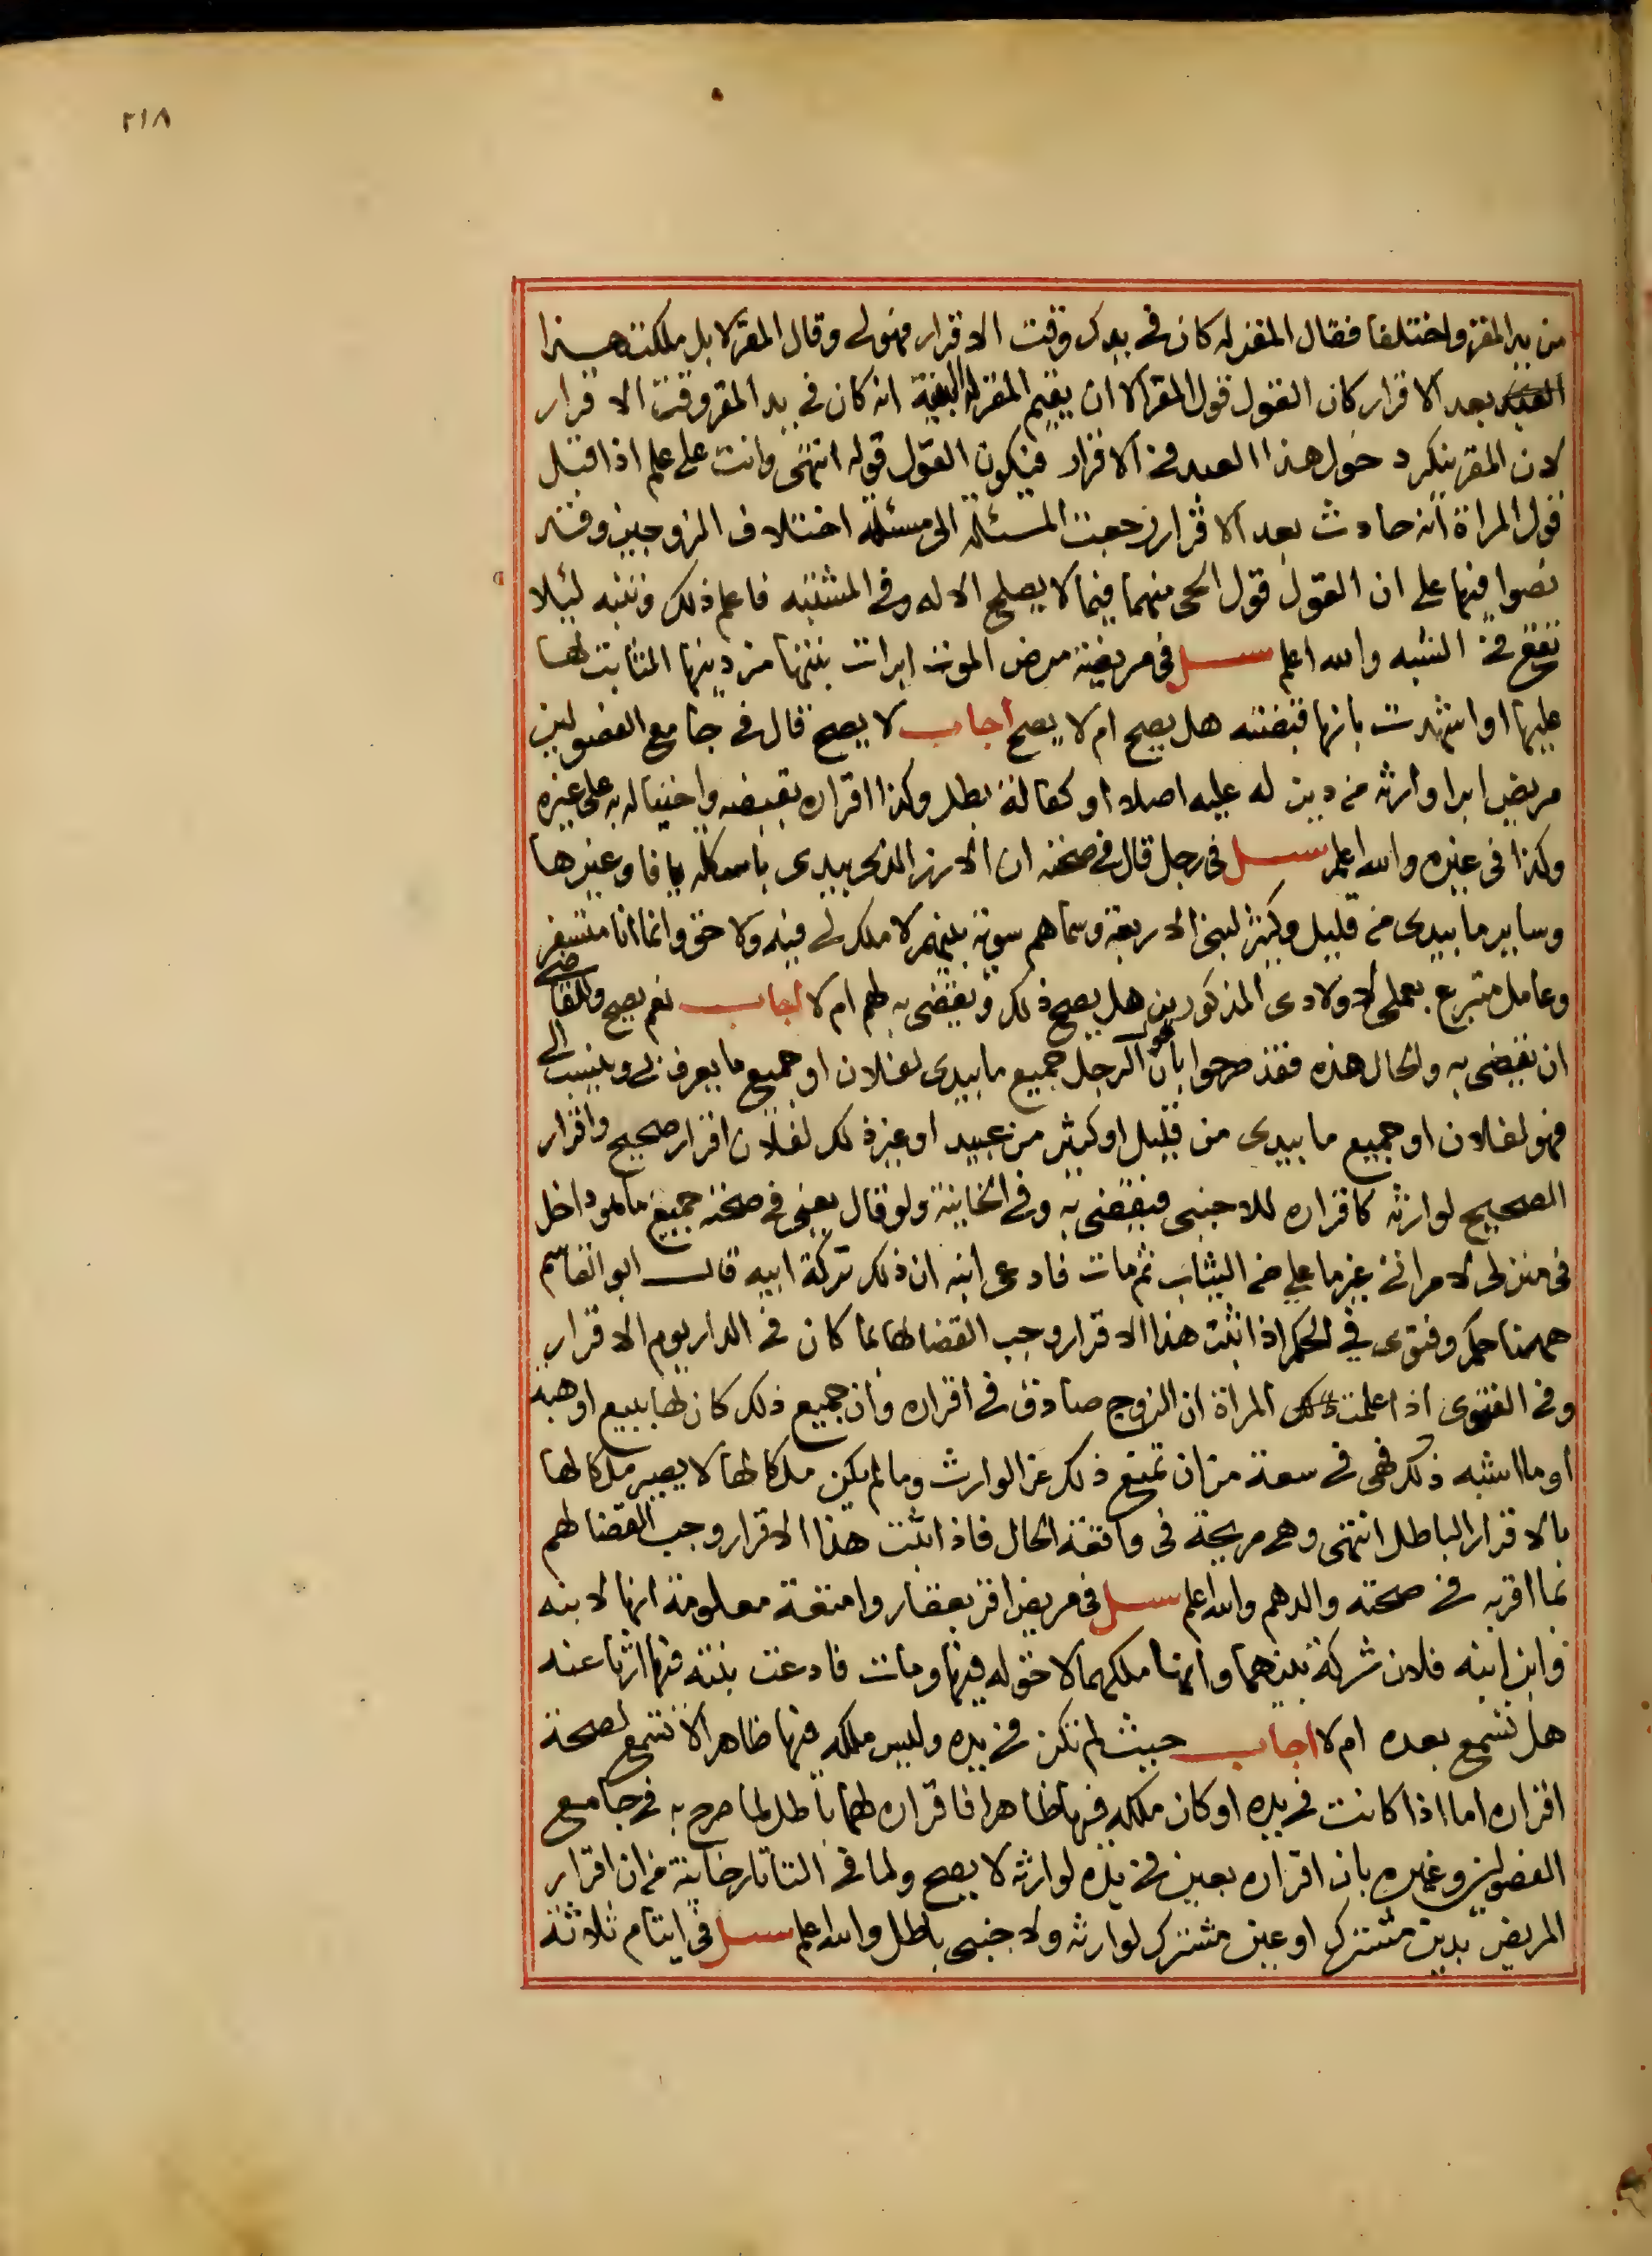 ٢١٨
من يد المقر واختلفا فقال المقر له كان في يدك وقت الاقرار فهو لي وقال المقر لا بل ملكت هذا
العبد بعد الاقرار كان القول قول المقر الا ان يقيم المقر له البينة انه كان في يد المقر وقت الاقرار
لان المقر ينكر دخول هذا العبد في الاقرار فيكون القول قوله انتهى وانت على علم اذا قبل
قول المراة انه حادث بعد الاقرار رجعت المسئلة الى مسئلة اختلاف الزوجين وقد
نصوا فيها على ان القول قول الحى منهما فيما لا يصلح الا له وفي المشتبه فاعلم ذلك وتنبه ليلا
تقع في الشبه والله اعلم سـل في مريضة مرض الموت ابرات بنتها من دينها الثابت لها
عليها او اشهدت بانها قبضته هل يصح ام لا يصح اجاب لا يصح قال في جامع الفصولين
مريض ابرا وارثه من دين له عليه اصلا او كفالة بطل وكذا اقراره بقبضه واحتياله به على غيره
وكذا في غيره والله اعلم سـل في رجل قال في صحته ان الارز الذي بيدى باسكلة يافا وغيرها
وساير ما بيدى من قليل وكثير لبنى الاربعة وسماهم سوية بينهم لا ملك لي فيه ولا حق وانما انا متسفر
وعامل متبرع بعملى لاولادى المذكورين هل يصح ذلك ويقضى به لهم ام لا اجاب نعم يصح وللقاضي
ان يقضى به والحال هذه فقد صرحوا بان قول الرجل جميع ما بيدى لفلان او جميع ما يعرف بي وينسب الى
فهو لفلان او جميع ما بيدى من قليل او كثير من عبيد او غير ذلك لفلان اقرار صحيح واقرار
الصحيح لوارثه كاقراره للاجنبى فيقضى به وفي الخانية ولو قال يعنى في صحته جميع ما هو داخل
فى منزلى لامراتى غير ما علي من الثياب ثم مات فادعى ابنه ان ذلك تركة ابيه قال ابو القاسم
ههنا حكم وفتوى في الحكم اذا ثبت هذا الاقرار وجب القضا لها بما كان في الدار يوم الاقرار
وفي الفتوى اذا علمت المراة ان الزوج صادق في اقراره وان جميع ذلك كان لها ببيع او هبة
او ما اشبه ذلك فهى في سعة من ان تمنع ذلك عن الوارث وما لم يكن ملكا لها لا يصير ملكا لها
بالاقرار الباطل انتهى وهى صريحة في واقعة الحال فاذا ثبت هذا الاقرار وجب القضا لهم
بما اقر به في صحته والدهم والله اعلم سـل في مريض اقر بعقار وامتعة معلومة انها لابنه
وابن ابنه فلان شركة بينهما وانها ملكهما لا حق له فيها ومات فادعت بنته فيها ارثها عنه
هل تسمع بعده ام لا اجاب حيث لم تكن في يده وليس ملكه فيها ظاهرا لا تسمع لصحة
اقراره اما اذا كانت في يده او كان ملكه فيها ظاهرا فاقراره لهما باطل لما صرح به في جامع
الفصولين وغيره بان اقراره بعين في يده لوارثه لا يصح ولما في التاتارخانية من ان اقرار
المريض بدين مشترك او عين مشترك لوارثه ولاجنبى باطل والله اعلم سـل في ايتام ثلاثة